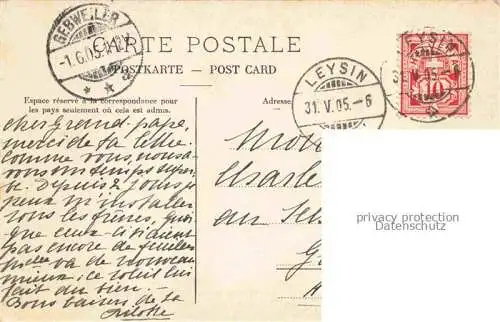 CARTE POSTALE
POSTKARTE — POST CARD
GEBWEILER
-1.6.05.
LEYSIN
31.V.05.-6
LEYSIN
31.V.05.
10
Espace réservé à la correspondance pour
les pays seulement où cela est admis.
Adresse
cher Grand-papa,
merci de ta lettre.
Comme vous, nous a-
vons un temps super-
be. Depuis 2 jours je
peux m'installer
sous les frênes, quoi-
que ceux-ci n'aient
pas encore de feuilles
va de nouveau
mieux; ce soleil lui
fait du bien.-
Bons baisers de ta
Charles
au
privacy protection
Datenschutz